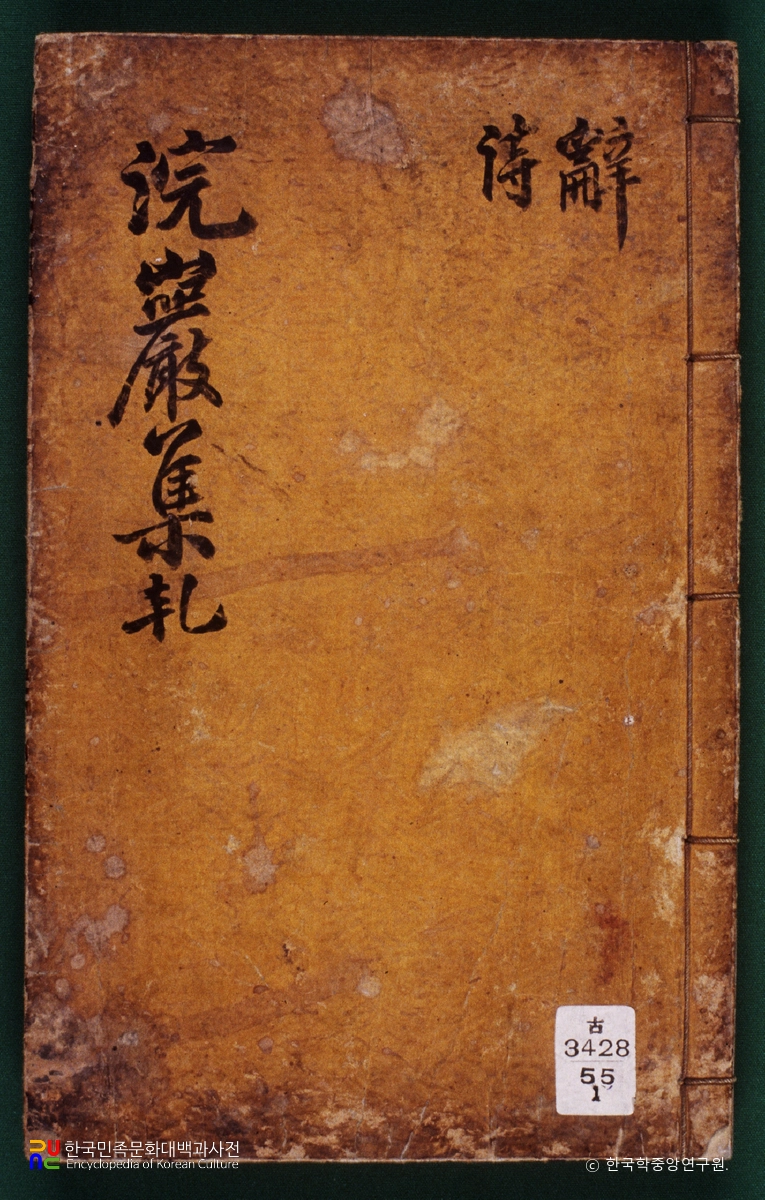 辭
詩
浣巖集 乹
古
3428
55
1
한국민족문화대백과사전
Encyclopedia of Korean Culture
© 한국학중앙연구원.